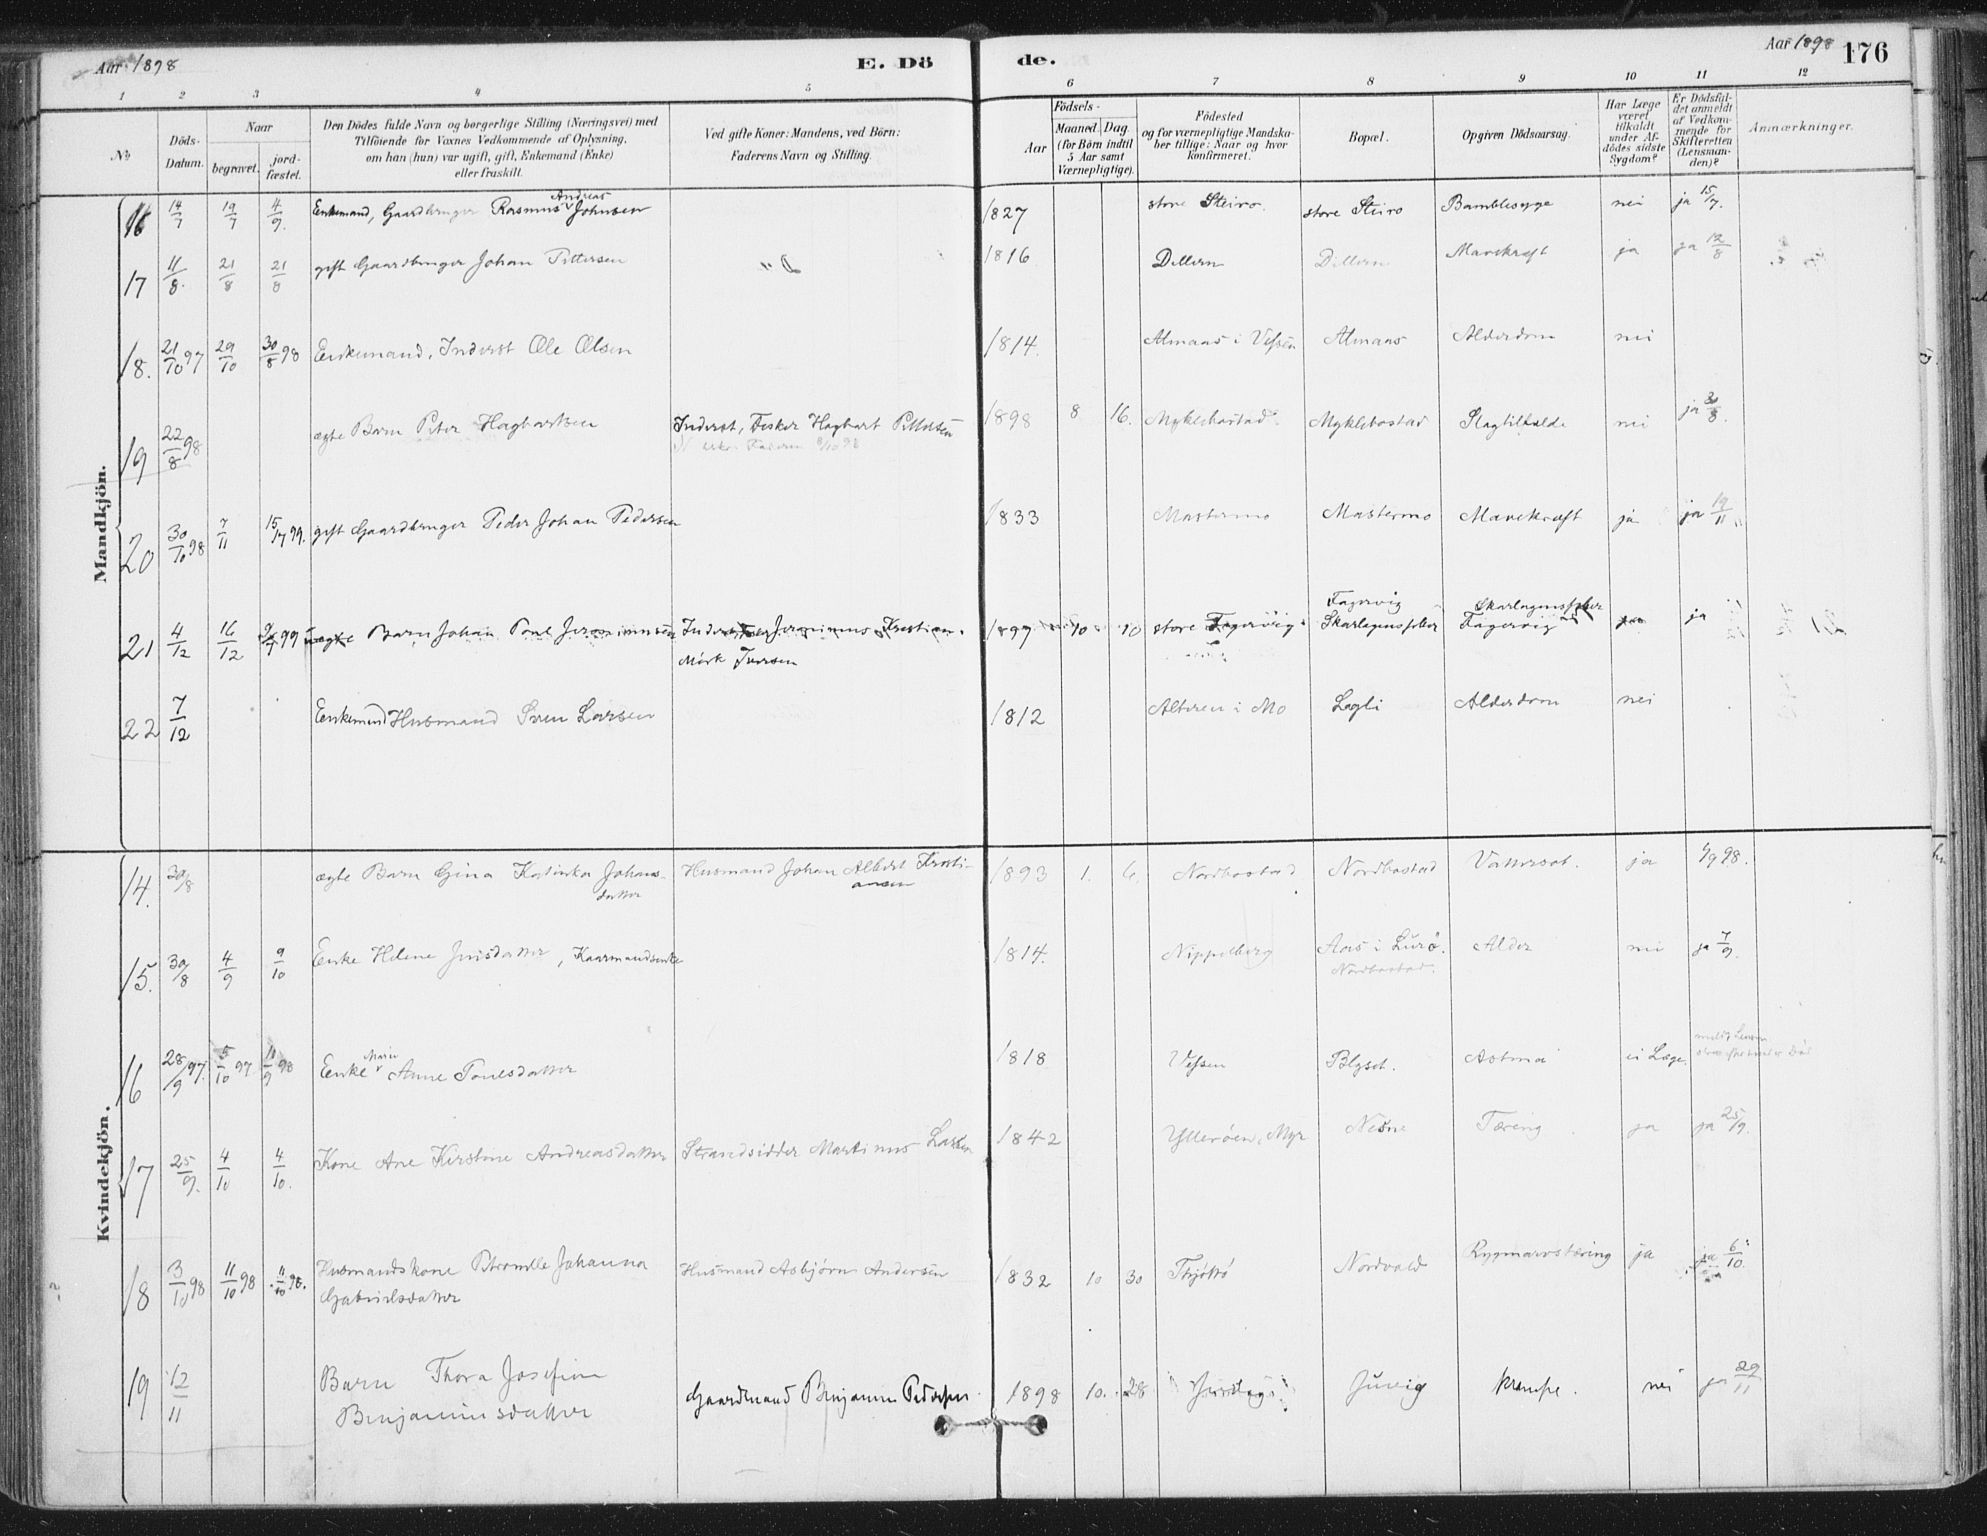 Aar 1898
E. Dö
de.
Aar 1898
176
1 2 3 4 5 6 7 8 9 10 11 12
No
Döds-
Datum.
Naar
begravet.
jord-
fæstet.
Den Dödes fulde Navn og borgerlige Stilling (Næringsvei) med
Tilföiende for Voxnes Vedkommende af Oplysning,
om han (hun) var ugift, gift, Enkemand (Enke)
eller fraskilt.
Ved gifte Koner: Mandens, ved Börn:
Faderens Navn og Stilling.
Födsels-
Aar
Maaned. Dag.
(for Börn indtil
5 Aar samt
Værnepligtige).
Födested
og for værnepligtige Mandska-
ber tillige: Naar og hvor
konfirmeret.
Bopæl.
Opgiven Dödsaarsag.
Har Læge
været
tilkaldt
under Af-
dödes sidste
Sygdom?
Er Dödsfal-
det anmeldt
af Vedkom-
mende for
Skifteretten
(Lensman-
den)?
Anmærkninger.
Mandkjön.
Andreas
16 14/7 19/7 4/9. Enkemand, Gaardbruger Rasmus Johnsen 1827 store Steiro. store Steiro Bamblesyge nei ja 15/7.
17 11/8. 21/8 21/8 gift Gaardbruger Johan Pettersen 1816 Dillern Dillern Mavekræft ja ja 12/8
18. 21/10 97 29/10 30/8 98 Enkemand, Inderst Ole Olsen 1814. Almaas i Vefsen Almaas Alderdom nei
19 22/8 98 ægte Barn Peter Hagbartsen Inderst, Fisker Hagbart Pettersen 1898 8 16. Myklebostad Myklebostad Slagtilfælde nei ja 30/8.
20 30/10 98 7/11 15/7 99. gift Gaardbruger Peder Johan Pedersen 1833 Mastermo Mastermo Mavekræft ja ja 19/11
Fagervig Skarlagensfeber
21 4/12 16/12 99 uægte Barn Johan Jeronimusen Inderst Jeronimus Kristian 1897 10 10 store Fagervig Skarlagensfeber Fagervig ja ja
Mörk Iversen
22 7/12 Enkemand Husmand Sven Larsen 1812 Alteren i Mo Lagli Alderdom nei
Kvindekjön.
14. 30/8 ægte Barn Gina Katinka Johans- Husmand Johan Albert Kristi- 1893 1. 6. Nordbostad Nordbostad Vattersot. ja 4/9 98.
datter ansen
15. 30/8 4/9 9/10 Enke Helene Jensdatter, Kaarmandsenke 1814. Nippelberg Aas i Lurö. Alder nei ja 7/9.
Nordbostad.
Marie
16 28/9 97. 5/10 97 11/9 98 Enke Anne Tonesdatter 1818 Vefsen Blyset. Astma ei Læge
17 25/9. 4/10 4/10. Kone Ane Kirstine Andreasdatter Strandsidder Martinus Larsen 1842 Ytterøen, Myr Nesne Tæring ja ja 25/9.
18 3/10 98 11/10 98 11/10 98. Husmandskone Petronelle Johanna Husmand Asbjørn Andersen 1832 10 30 Thjøttø Nordvald Rygmarvstæring ja ja 6/10.
Gabrielsdatter
19 12/11 Barn Thora Josefine Gaardmand Benjamin Pedersen 1898 10. 28 Juvig krampe. nei ja 29/11
Benjaminsdatter